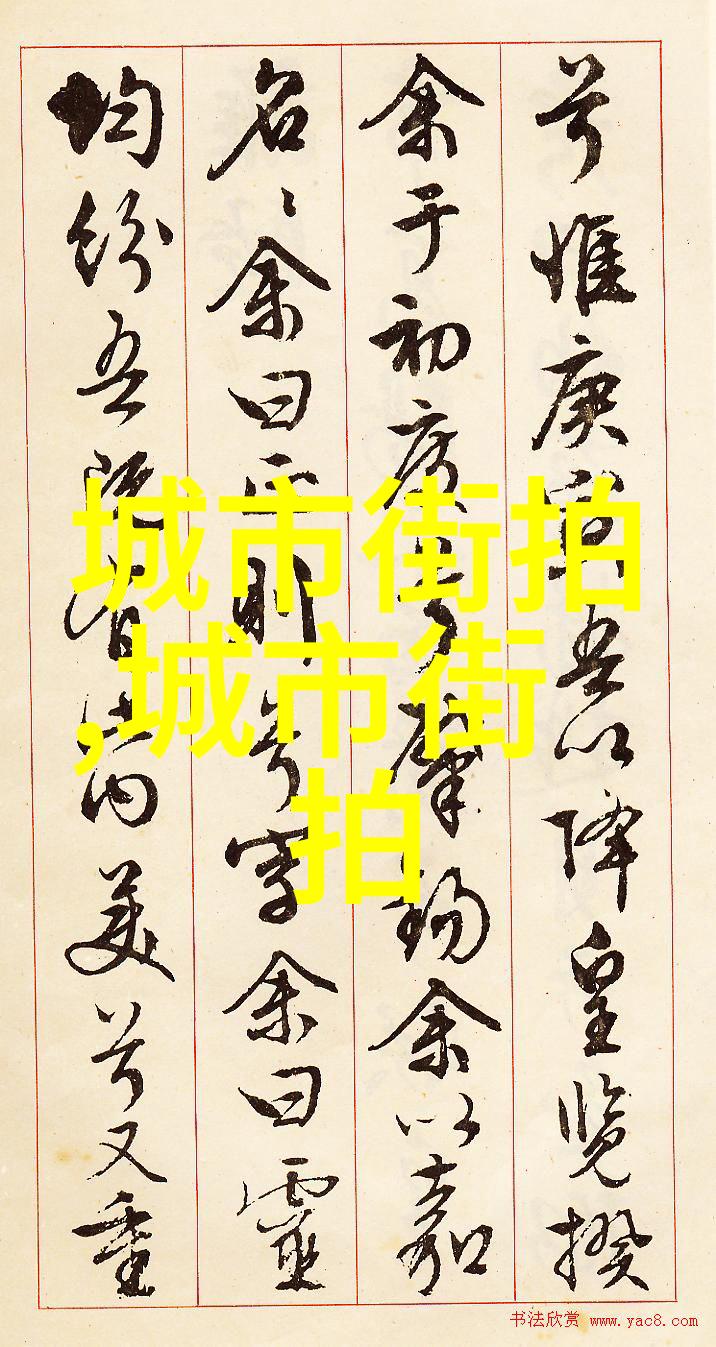 兮惟庚寅吾以降皇覽揆
余于初度兮肇錫余以嘉
名〻余曰正則兮字余曰靈
均紛吾既有此內美兮又重
城市街拍
,城市街
拍
书法欣赏 www.yac8.com